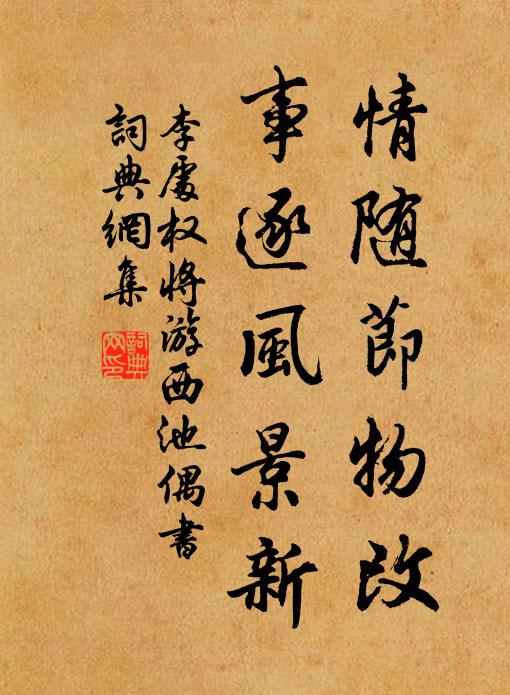 情随節物改
事逐風景新
李處权将游西池偶書
詞典網集
詞典
网印